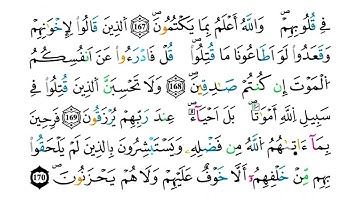 فِى قُلُوبِهِمْ ۗ وَاللَّهُ أَعْلَمُ بِمَا يَكْتُمُونَ ﴿167﴾ الَّذِينَ قَالُوا لِإِخْوَانِهِمْ
وَقَعَدُوا لَوْ أَطَاعُونَا مَا قُتِلُوا ۗ قُلْ فَادْرَءُوا عَنْ أَنفُسِكُمُ
الْمَوْتَ إِن كُنتُمْ صَٰدِقِينَ ﴿168﴾ وَلَا تَحْسَبَنَّ الَّذِينَ قُتِلُوا فِى
سَبِيلِ اللَّهِ أَمْوَٰتًۢا ۚ بَلْ أَحْيَآءٌ عِندَ رَبِّهِمْ يُرْزَقُونَ ﴿169﴾ فَرِحِينَ
بِمَآ ءَاتَىٰهُمُ اللَّهُ مِن فَضْلِهِۦ وَيَسْتَبْشِرُونَ بِالَّذِينَ لَمْ يَلْحَقُوا
بِهِم مِّنْ خَلْفِهِمْ أَلَّا خَوْفٌ عَلَيْهِمْ وَلَا هُمْ يَحْزَنُونَ ﴿170﴾